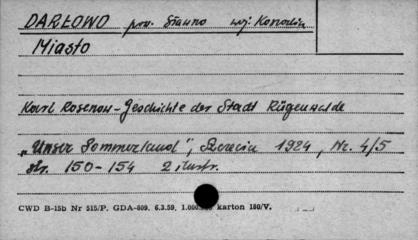 DARŁOWO pow. Sławno woj. Koszalin
Miasto
Karl Rosenow - Geschichte der Stadt Rügenwalde
„Unser Pommerland", Szczecin 1924, Nr. 4/5
str. 150-154 2 ilustr.
CWD B-15b Nr 515/P. GDA-809. 6.3.59. 1.000.000 karton 180/V.